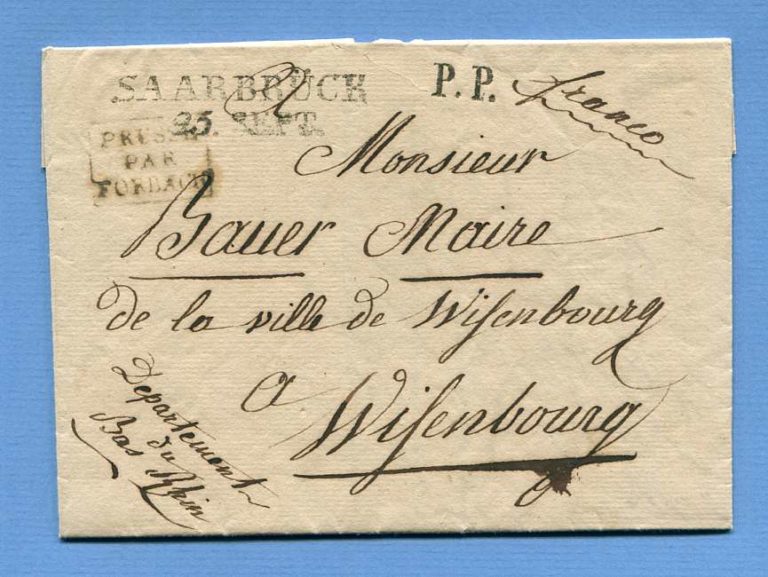 SAARBRÜCK
25. SEPT.
P.P.
franco
PRUSSE
PAR
FORBACH
A
Monsieur
Bauer Maire
de la ville de Wisenbourg
a Wisenbourg
Departement
du
Bas Rhin